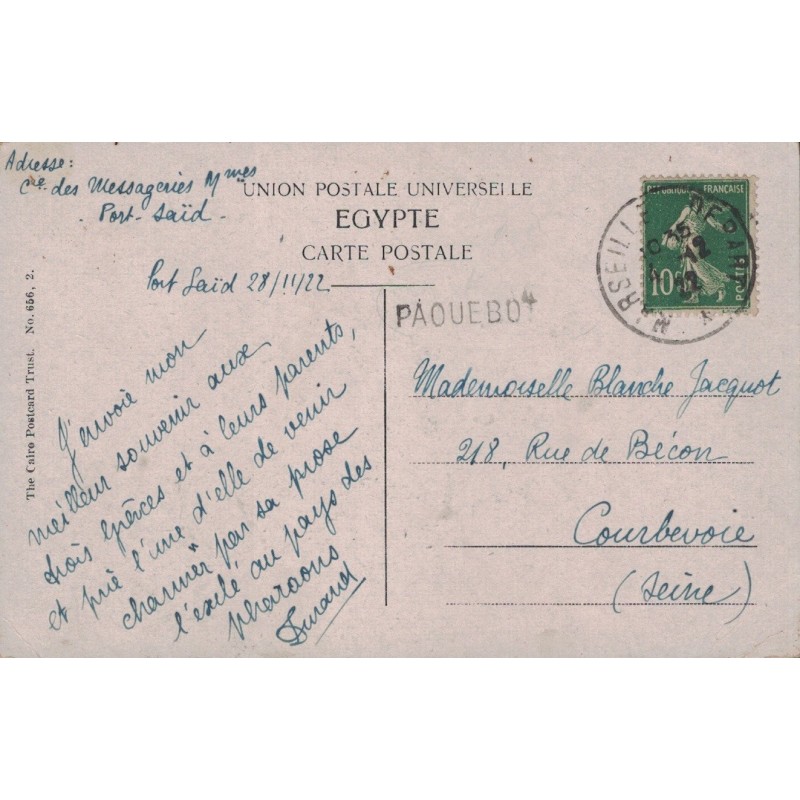 Adresse:
Cie des Messageries Mmes
Port-Saïd -
UNION POSTALE UNIVERSELLE
EGYPTE
CARTE POSTALE
Port Saïd 28/11/22
PAQUEBOT
REPUBLIQUE FRANÇAISE
10c
POSTES
MARSEILLE DEPART
J'envoie mon
meilleur souvenir aux
trois grâces et à leurs parents,
et prie l'une d'elle de venir
"charmer" par sa prose
l'exilé au pays des
pharaons
Durand
Mademoiselle Blanche Jacquot
218, Rue de Bécon
Courbevoie
(Seine)
The Cairo Postcard Trust. No. 656, 2.